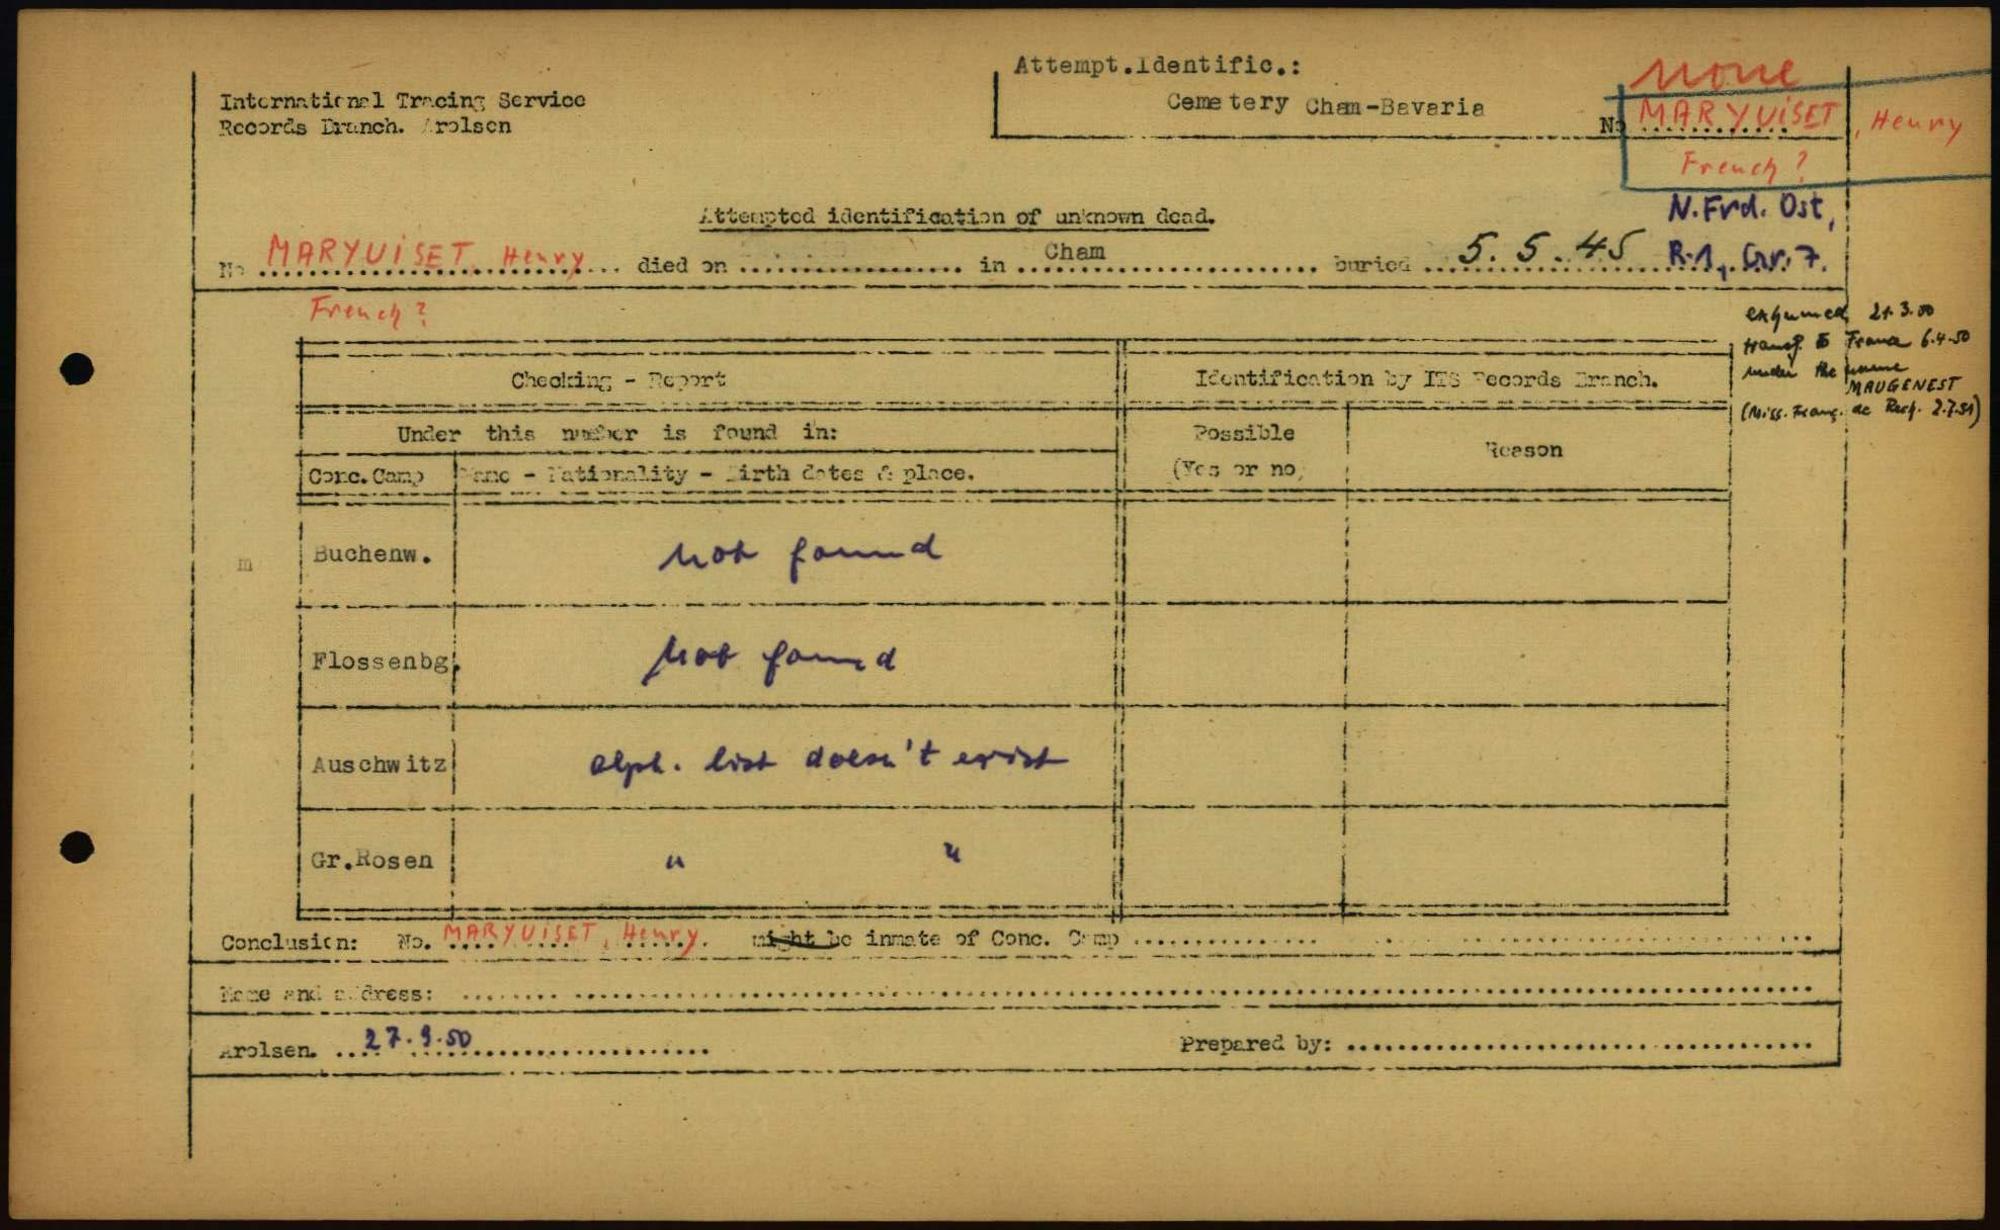 International Tracing Service
Records Branch. Arolsen
Attempt.Identific.:
Cemetery Cham-Bavaria
None
No MARYUISET, Henry
French?
N.Frd. Ost,
R.1, Gr. 7.
Attempted identification of unknown dead.
No MARYUISET, Henry died on in Cham buried 5.5.45
French?
exhumed 21.3.50
transf. to France 6.4.50
under the name
MAUGENEST
(Miss. Franç. de Rech. 2.7.51)
Checking - Report
Identification by ITS Records Branch.
Under this number is found in:
Possible
(Yes or no)
Reason
Conc.Camp Name - Nationality - Birth dates & place.
Buchenw. not found
m
Flossenbg. Not found
Auschwitz alph. list doesn't exist
Gr.Rosen " "
Conclusion: No. MARYUISET, Henry. might be inmate of Conc. Camp
Name and address:
Arolsen. 27.9.50 Prepared by: